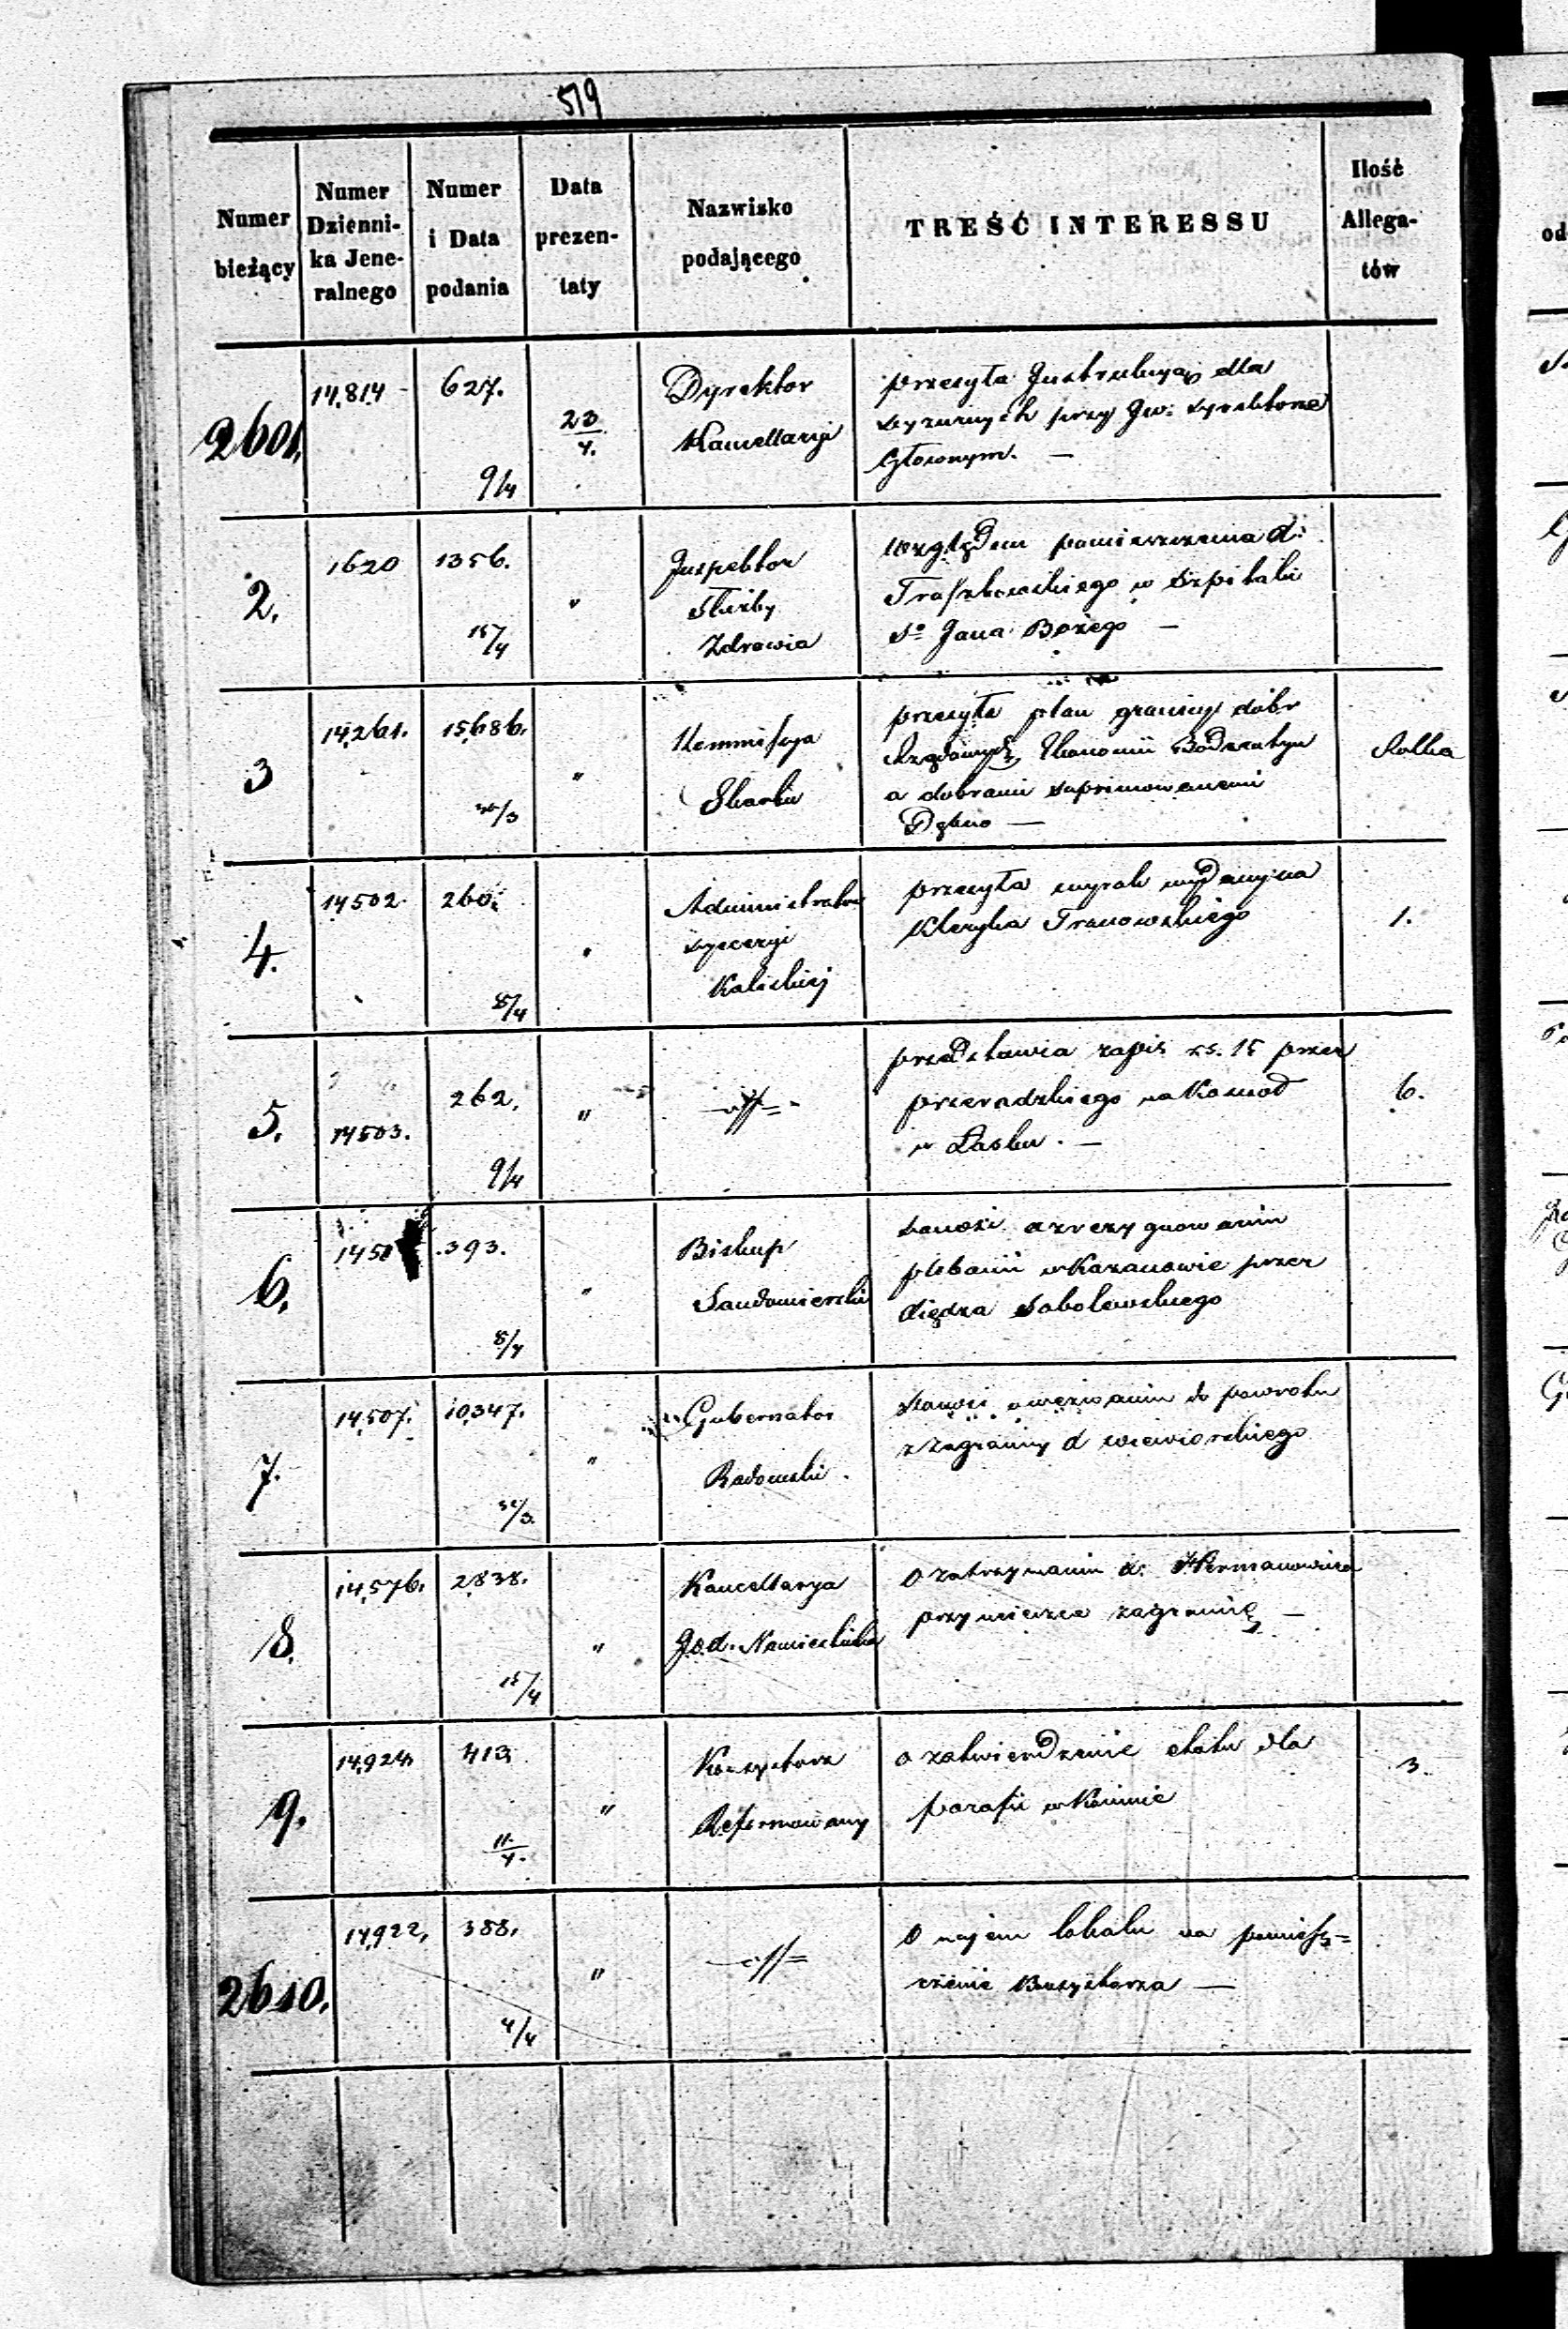 519
Numer bieżący | Numer Dzienni-ka Jene-ralnego | Numer i Data podania | Data prezen-taty | Nazwisko podającego | TREŚĆ INTERESSU | Ilość Allega-tów
2601. | 14,814 | 627. 9/4 | 23/4. | Dyrektor Kancellaryi | przesyła Instrukcyą dla dyżurnych przy Gw: Dyrektorze Głównym. —
2. | 1620 | 1356. 15/4 | " | Inspektor Służby Zdrowia | względem pomieszczenia d: w Szpitalu So Jana Bożego —
3 | 14,261. | 15,686. /3 | " | Kommissya Skarbu | przesyła plan granicy dóbr Rządowych Ekonomii Bodzentyn a dobrami suprimowanemi Dębno — | Rolka
4. | 14502 | 260. 8/4 | " | Administrator Dyecezyi Kaliskiej | przesyła wyrok wydany na Kleryka Tranowskiego | 1.
5. | 14503. | 262. 9/4 | " | —//= | przedstawia zapis rs. 15 przez na w Łasku. — | 6.
6. | 1450 | 393. 8/4 | " | Biskup Sandomierski | donosi o zrezygnowaniu plebanii w Kazanowie przez Xiędza Sobolewskiego
7. | 14,507. | 10,347. 31/3. | " | Gubernator Radomski. | donosi o wezwaniu do powrotu z zagranicy d Wiewiorskiego
8. | 14,576. | 2,838. 15/4 | " | Kancellarya J.O.X. Namiestnika | O zatrzymaniu X: Hermanowicza przy wieszce zagranicę —
9. | 14,924. | 413 11/4. | " | Konsystorz Reformowany | o zatwierdzenie etatu dla parafii w | 3.
2610. | 14,922, | 388. 4/4 | " | —//= | O najem lokalu na pomiesz=czenie Konsystorza —